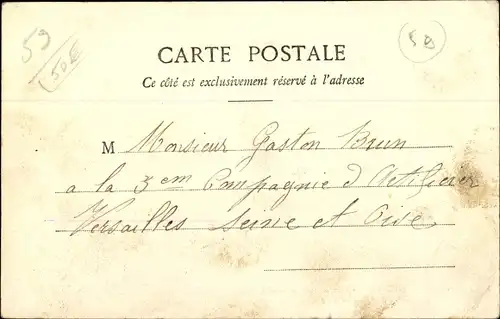 59
50
50
CARTE POSTALE
Ce côté est exclusivement réservé à l'adresse
M Monsieur Gaston Brun
a la 3em Compagnie d Artificier
Versailles Seine et Oise